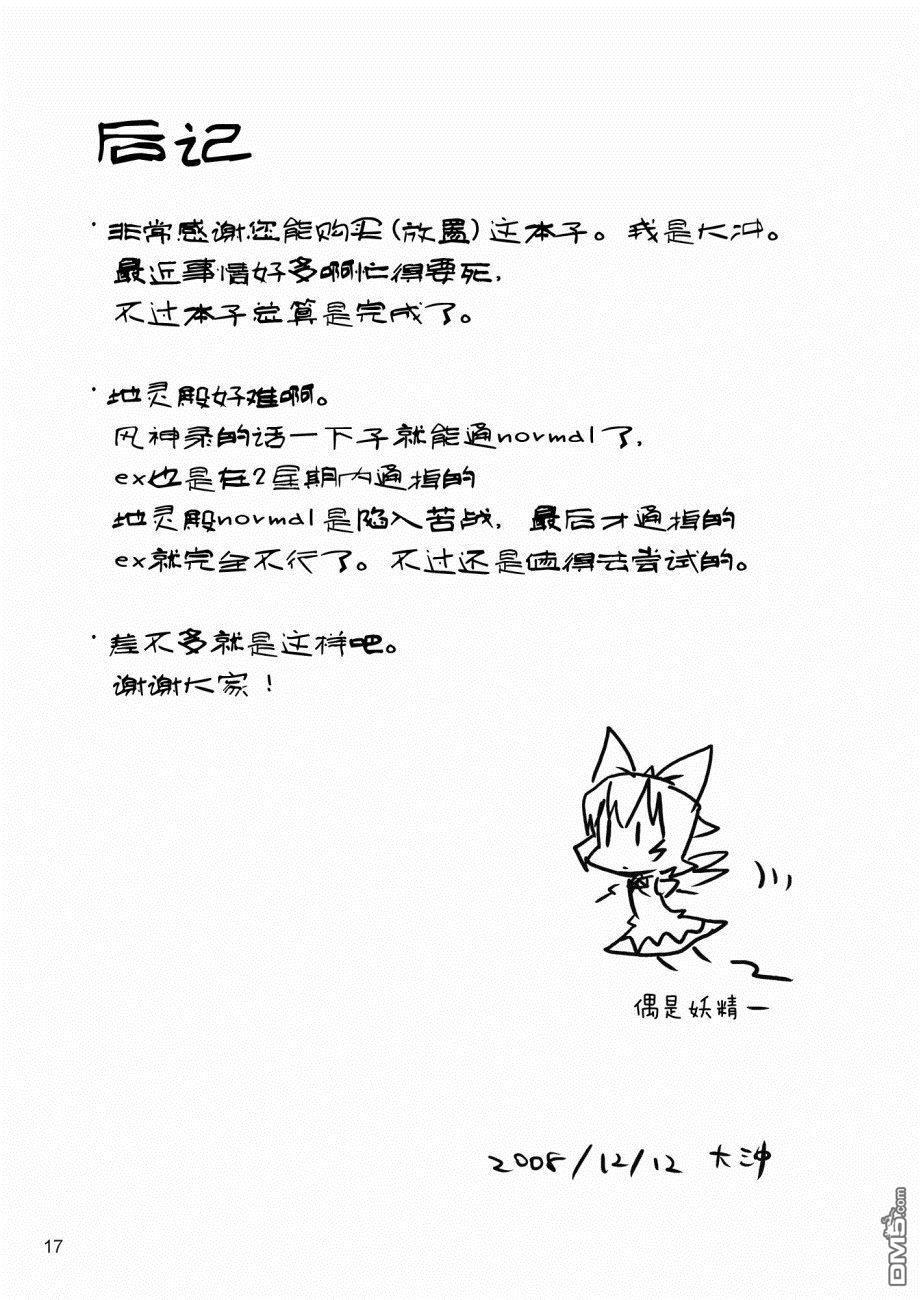 后记
·非常感谢您能购买(放置)这本子。我是大冲。
最近事情好多啊忙得要死，
不过本子总算是完成了。
·地灵殿好难啊。
风神录的话一下子就能通normal了，
ex也是在2星期内通掉的
地灵殿normal是陷入苦战，最后才通掉的
ex就完全不行了。不过还是值得去尝试的。
·差不多就是这样吧。
谢谢大家！
偶是妖精一
2008/12/12 大沖
17
DM5.com